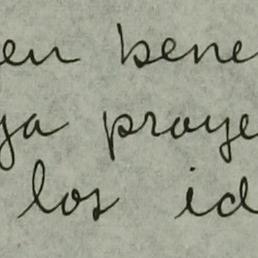 en bene
ya proye
los id